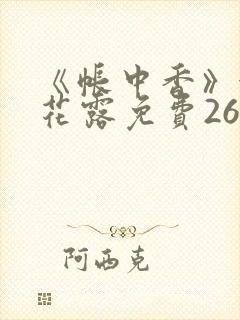 《帐中香》
花露免费26
阿西克